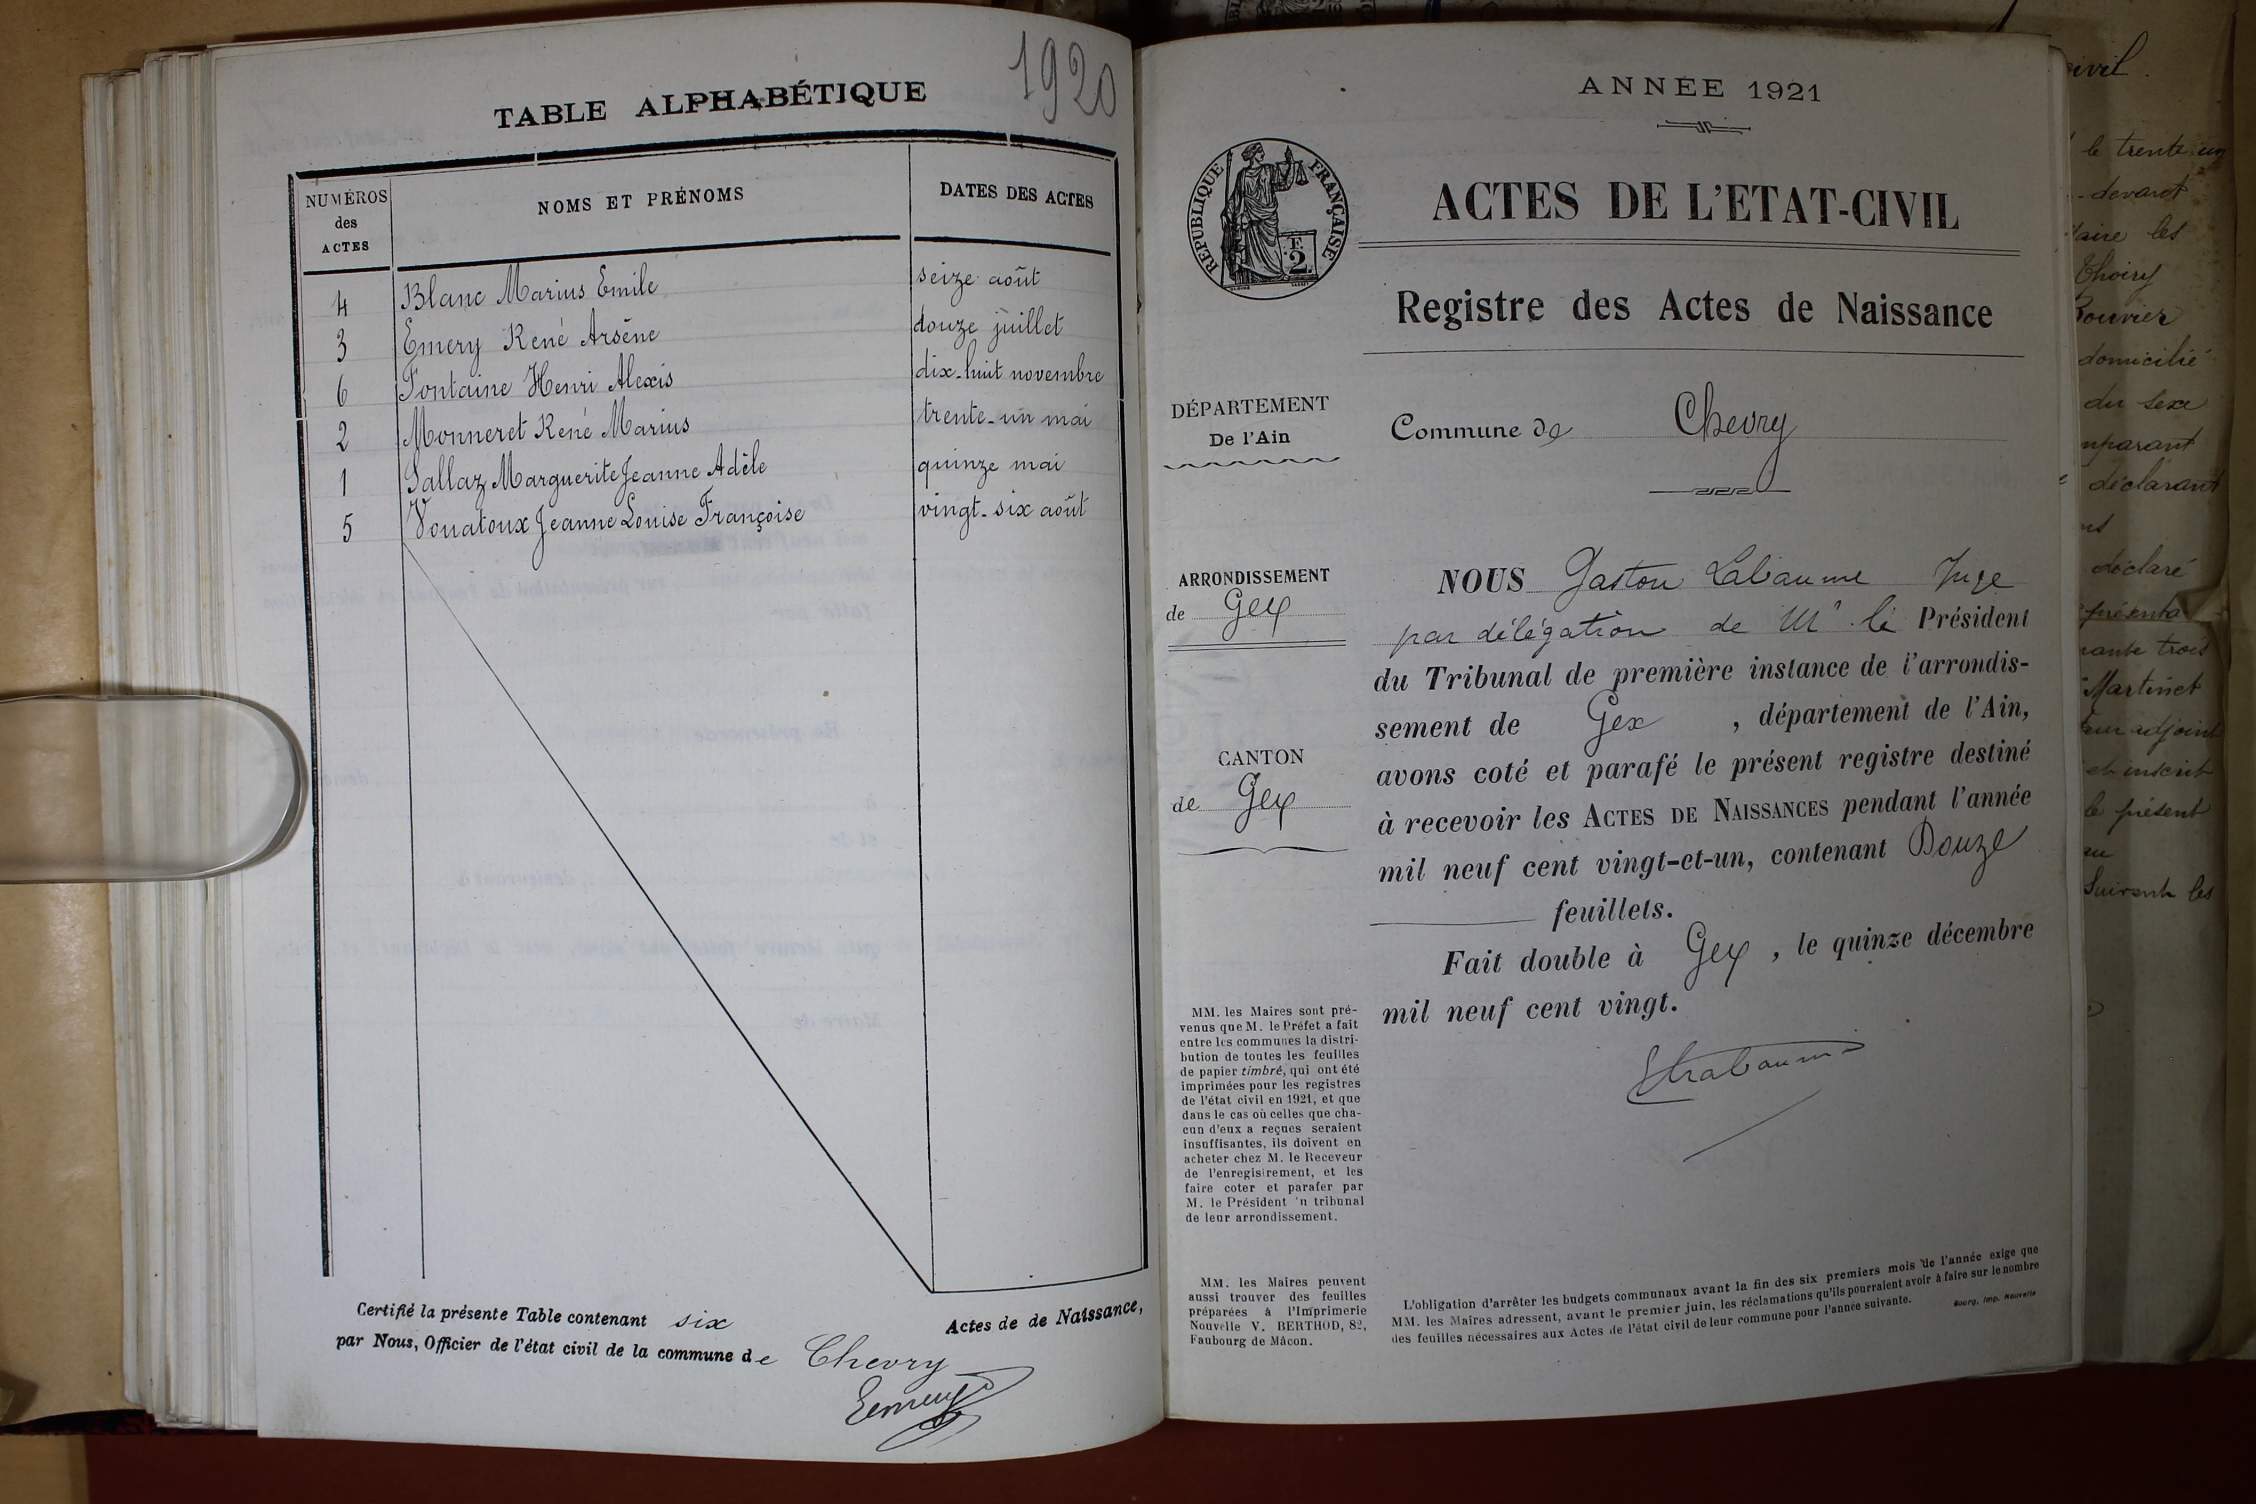 1920
TABLE ALPHABÉTIQUE
NUMÉROS des ACTES
NOMS ET PRÉNOMS
DATES DES ACTES
4 Blanc Marius Emile seize août
3 Emery René Arsène douze juillet
6 Fontaine Henri Alexis dix-huit novembre
2 Monneret René Marius trente-un mai
1 Sallaz Marguerite Jeanne Adèle quinze mai
5 Vouatoux Jeanne Louise Françoise vingt-six août
Certifié la présente Table contenant six Actes de de Naissance,
par Nous, Officier de l'état civil de la commune de Chevry
Emery
ANNÉE 1921
RÉPUBLIQUE FRANÇAISE
F.
2
ACTES DE L'ETAT-CIVIL
Registre des Actes de Naissance
DÉPARTEMENT
De l'Ain
Commune de Chevry
ARRONDISSEMENT
de Gex
CANTON
de Gex
NOUS Gaston Labaume Juge
par délégation de Mr le Président
du Tribunal de première instance de l'arrondis-
sement de Gex , département de l'Ain,
avons coté et parafé le présent registre destiné
à recevoir les ACTES DE NAISSANCES pendant l'année
mil neuf cent vingt-et-un, contenant Douze
feuillets.
Fait double à Gex , le quinze décembre
mil neuf cent vingt.
MM. les Maires sont pré-
venus que M. le Préfet a fait
entre les communes la distri-
bution de toutes les feuilles
de papier timbré, qui ont été
imprimées pour les registres
de l'état civil en 1921, et que
dans le cas où celles que cha-
cun d'eux a reçues seraient
insuffisantes, ils doivent en
acheter chez M. le Receveur
de l'enregisirement, et les
faire coter et parafer par
M. le Président 'n tribunal
de leur arrondissement.
MM. les Maires peuvent
aussi trouver des feuilles
préparées à l'Imprimerie
Nouvelle V. BERTHOD, 82,
Faubourg de Mâcon.
L'obligation d'arrêter les budgets communaux avant la fin des six premiers mois de l'année exige que
MM. les Maires adressent, avant le premier juin, les réclamations qu'ils pourraient avoir à faire sur le nombre
des feuilles nécessaires aux Actes de l'état civil de leur commune pour l'année suivante.
Bourg, Imp. Nouvelle
civil.
le trente un
devant
les
Thoiry
domicilié
du sexe
déclarant
déclaré
trois
Martinet
adjoint
inscrit
le présent
Suivent les